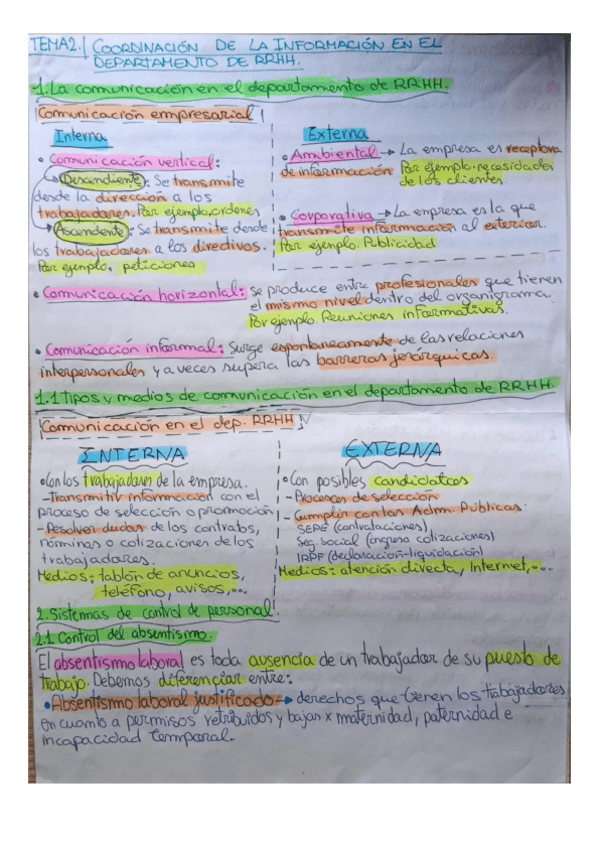 TEMA2. COORDINACIÓN DE LA INFORMACIÓN EN EL
DEPARTAMENTO DE RRHH.
1. La comunicación en el departamento de RRHH.
Comunicación empresarial
Interna
• Comunicación vertical:
Descendiente: Se transmite
desde la dirección a los
trabajadores. Por ejemplo, ordenes
Ascendente: Se transmite desde
los trabajadores a los directivos.
Por ejemplo, peticiones
Externa
• Ambiental → La empresa es receptora
de información Por ejemplo. necesidades
de los clientes
• Corporativa → La empresa es la que
transmite información al exterior.
Por ejemplo. Publicidad
• Comunicación horizontal: se produce entre profesionales que tienen
el mismo nivel dentro del organigrama.
Por ejemplo Reuniones informativas.
• Comunicación informal: Surge espontaneamente de las relaciones
interpersonales y a veces supera las barreras jerárquicas.
1.1 Tipos y medios de comunicación en el departamento de RRHH.
Comunicación en el dep. RRHH
INTERNA
• Con los trabajadores de la empresa.
- Transmitir información con el
proceso de selección o promoción
- Resolver dudas de los contratos,
nóminas o cotizaciones de los
trabajadores.
Medios: tablón de anuncios,
teléfono, avisos,...
EXTERNA
• Con posibles candidatos
- Procesos de selección
- Cumplir con las Adm. Públicas:
SEPE (contrataciones)
Seg. Social (ingresa cotizaciones)
IRPF (declaración-liquidación)
Medios: atención directa, Internet,...
2. Sistemas de control de personal.
2.1 Control del absentismo.
El absentismo laboral es toda ausencia de un trabajador de su puesto de
trabajo. Debemos diferenciar entre:
• Absentismo laboral justificado → derechos que tienen los trabajadores
en cuanto a permisos retribuidos y bajas x maternidad, paternidad e
incapacidad temporal.